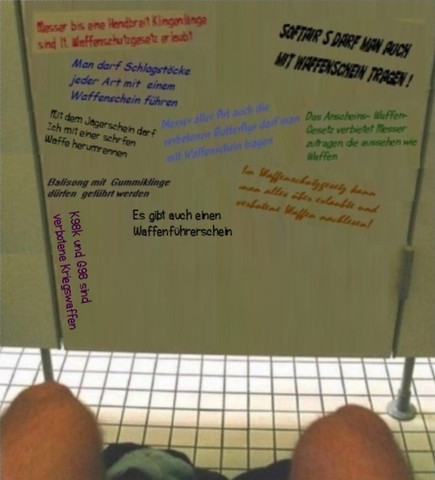 Messer bis eine Handbreit Klingenlänge
sind lt. Waffenschutzgesetz erlaubt
SOFTAIR S DARF MAN AUCH
MIT WAFFENSCHEIN TRAGEN !
Man darf Schlagstöcke
jeder Art mit einem
Waffenschein führen
Mit dem Jägerschein darf
Ich mit einer schrfen
Waffe herumrennen
Messer aller Art auch die
verbotenen Butterflur darf man
mit Waffenschein tragen
Das Anscheins- Waffen-
Gesetz verbietet Messer
zutragen, die aussehen wie
Waffen
Balisong mit Gummiklinge
dürfen geführt werden
Im Waffenschutzgesetz kann
man alles über erlaubte und
verbotene Waffen nachlesen!
Es gibt auch einen
Waffenführerschein
K98K und G98 sind
verbotene Kriegswaffen